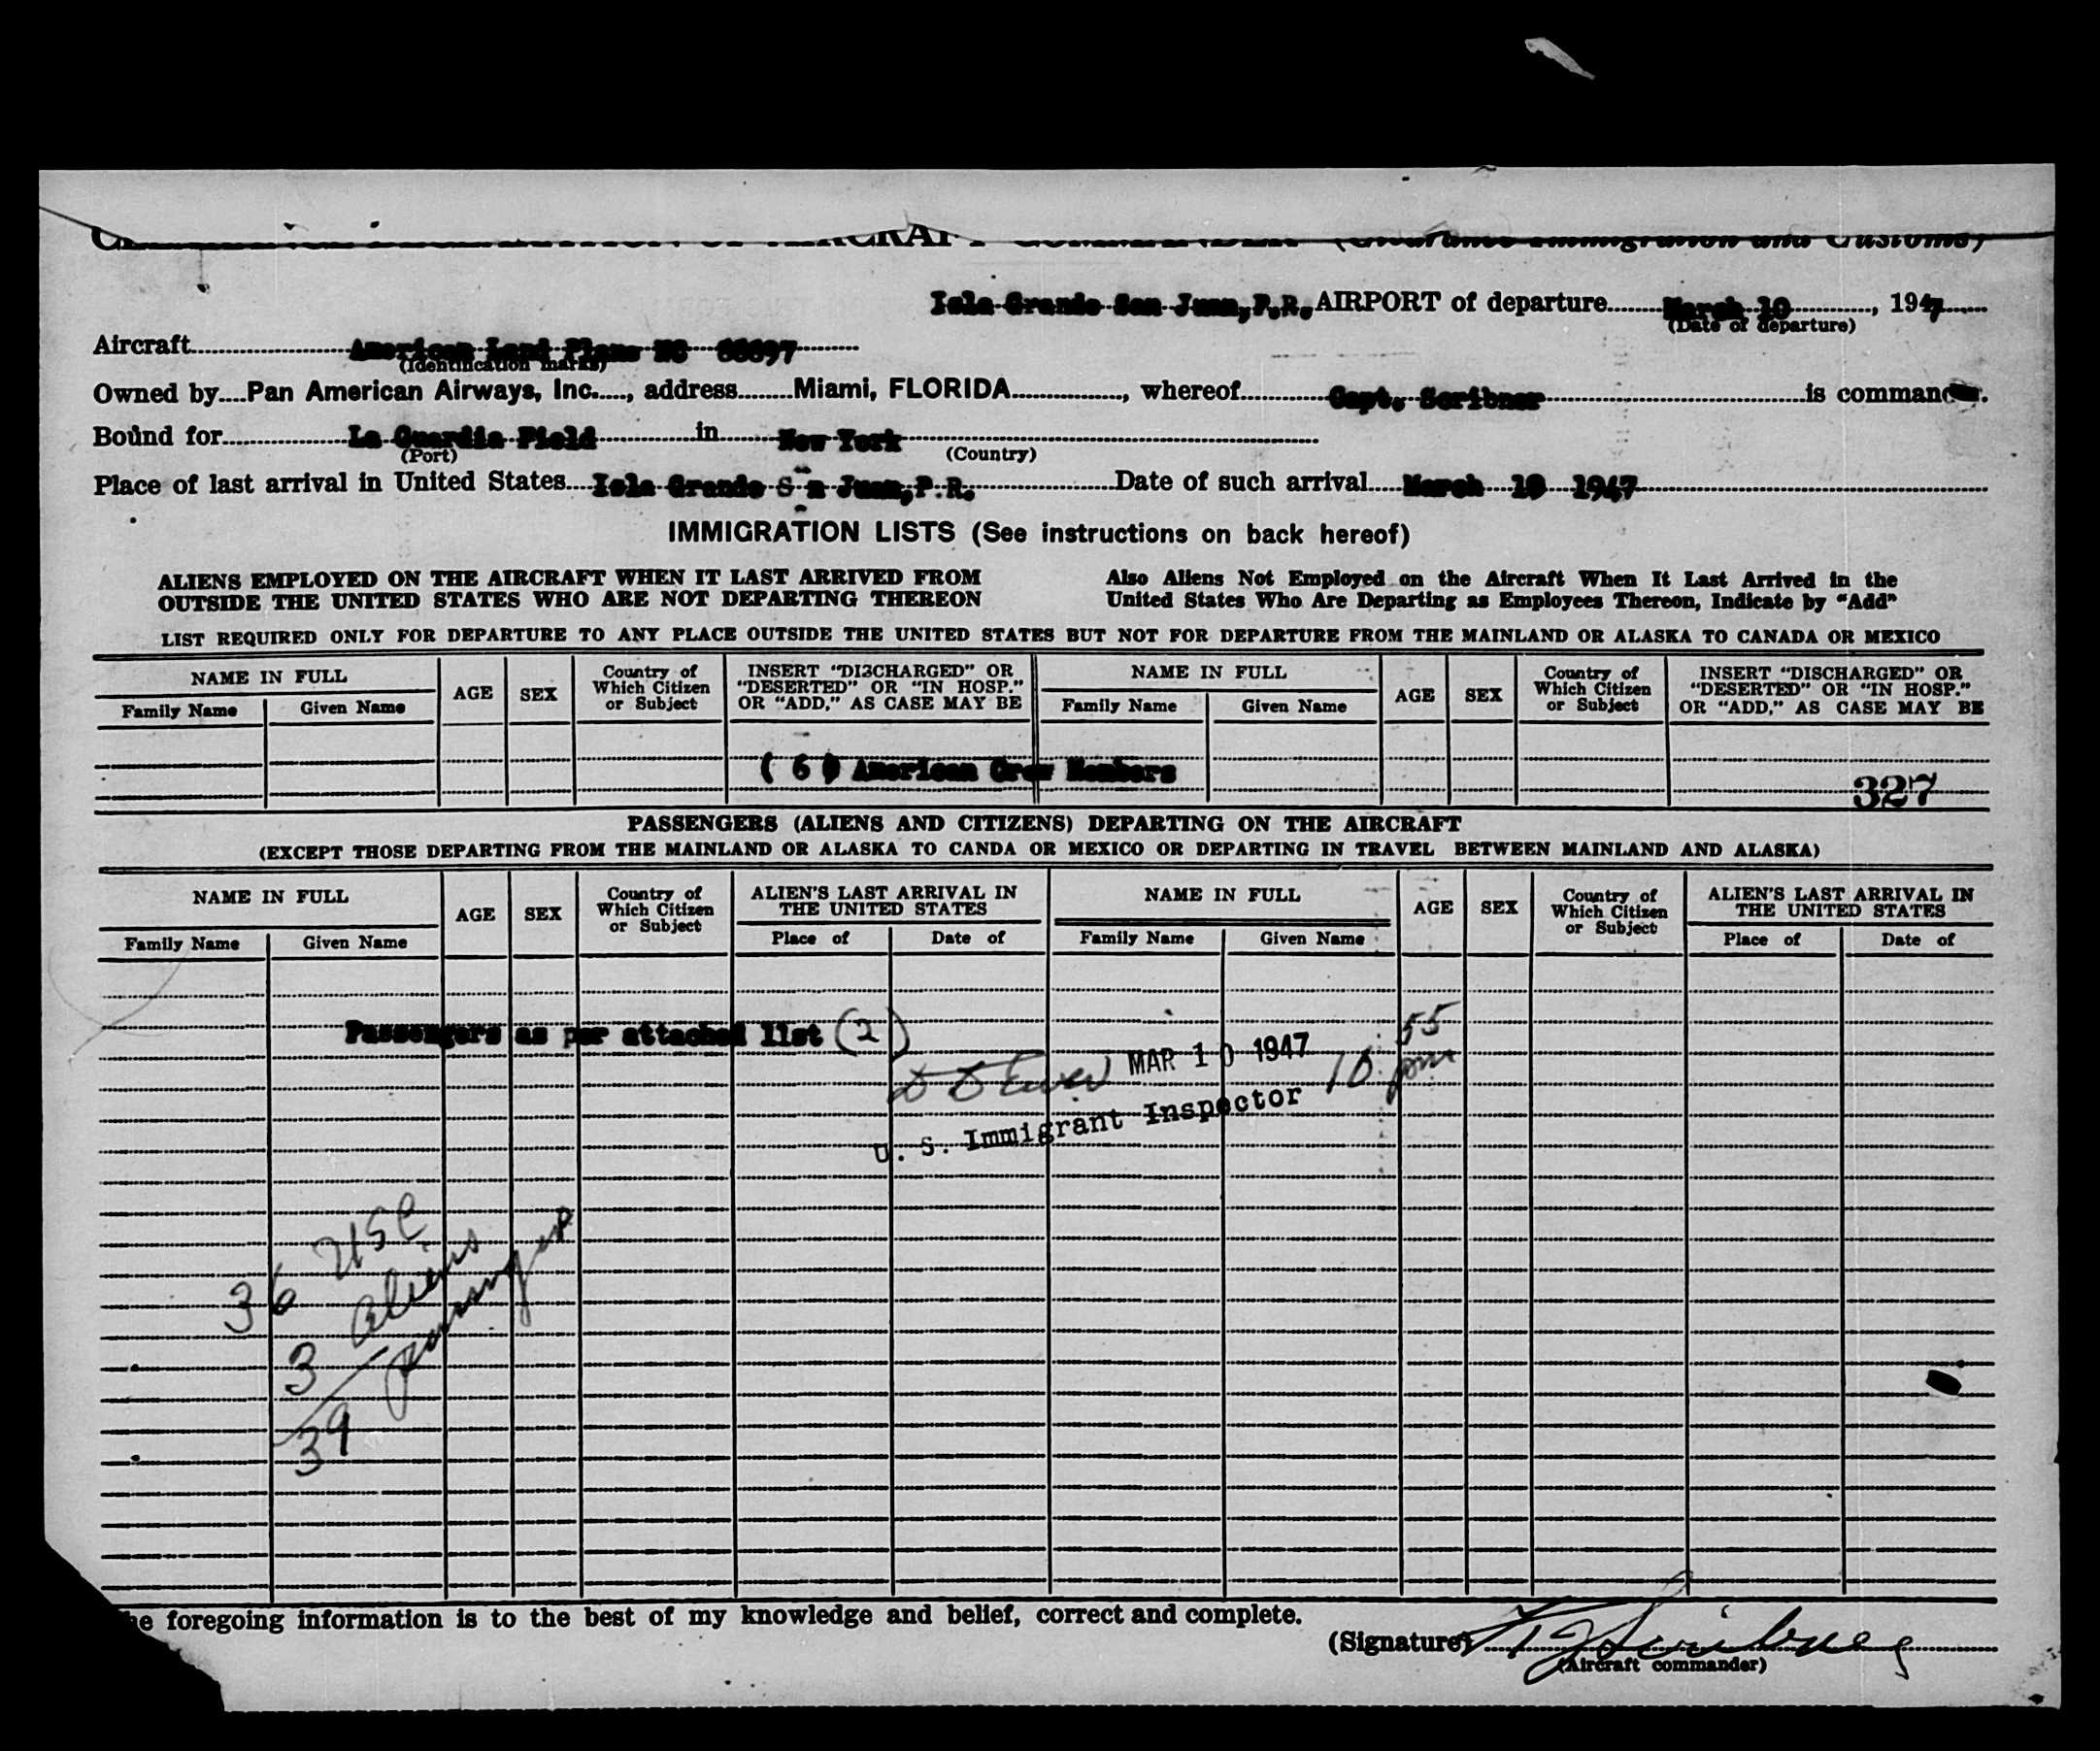 (Clearance Immigration and Customs)
Isla Grande San Juan, P.R. AIRPORT of departure March 10, 1947
(Date of departure)
Aircraft American Land Plane NC 88897
(Identification marks)
Owned by Pan American Airways, Inc., address Miami, FLORIDA, whereof Capt. Scribner is commander.
Bound for La Guardia Field in New York
(Port) (Country)
Place of last arrival in United States Isla Grande S n Juan, P.R. Date of such arrival March 10 1947
IMMIGRATION LISTS (See instructions on back hereof)
ALIENS EMPLOYED ON THE AIRCRAFT WHEN IT LAST ARRIVED FROM
OUTSIDE THE UNITED STATES WHO ARE NOT DEPARTING THEREON
Also Aliens Not Employed on the Aircraft When It Last Arrived in the
United States Who Are Departing as Employees Thereon, Indicate by "Add"
LIST REQUIRED ONLY FOR DEPARTURE TO ANY PLACE OUTSIDE THE UNITED STATES BUT NOT FOR DEPARTURE FROM THE MAINLAND OR ALASKA TO CANADA OR MEXICO
NAME IN FULL
Family Name Given Name
AGE
SEX
Country of
Which Citizen
or Subject
INSERT "DISCHARGED" OR
"DESERTED" OR "IN HOSP."
OR "ADD," AS CASE MAY BE
NAME IN FULL
Family Name Given Name
AGE
SEX
Country of
Which Citizen
or Subject
INSERT "DISCHARGED" OR
"DESERTED" OR "IN HOSP."
OR "ADD," AS CASE MAY BE
( 6 ) American Crew Members
327
PASSENGERS (ALIENS AND CITIZENS) DEPARTING ON THE AIRCRAFT
(EXCEPT THOSE DEPARTING FROM THE MAINLAND OR ALASKA TO CANDA OR MEXICO OR DEPARTING IN TRAVEL BETWEEN MAINLAND AND ALASKA)
NAME IN FULL
Family Name Given Name
AGE
SEX
Country of
Which Citizen
or Subject
ALIEN'S LAST ARRIVAL IN
THE UNITED STATES
Place of Date of
NAME IN FULL
Family Name Given Name
AGE
SEX
Country of
Which Citizen
or Subject
ALIEN'S LAST ARRIVAL IN
THE UNITED STATES
Place of Date of
Passengers as per attached list (2)
MAR 10 1947 10:55 pm
U. S. Immigrant Inspector
36 USC
3 aliens
39 passenger
he foregoing information is to the best of my knowledge and belief, correct and complete.
(Signature) Scribner
(Aircraft commander)